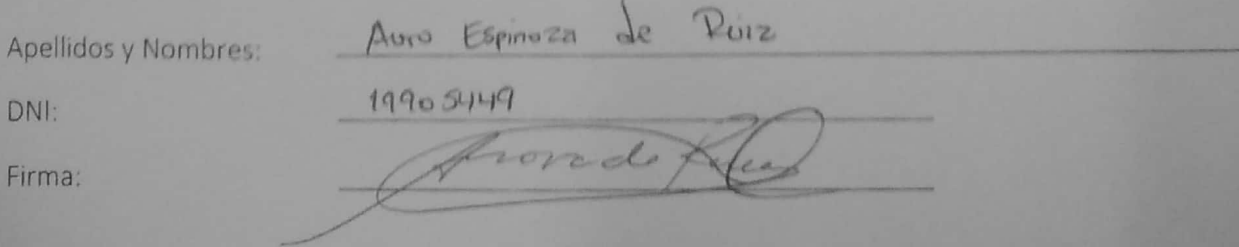 Apellidos y Nombres: Auro Espinoza de Ruiz
DNI: 19905449
Firma: Aurora de Ruiz